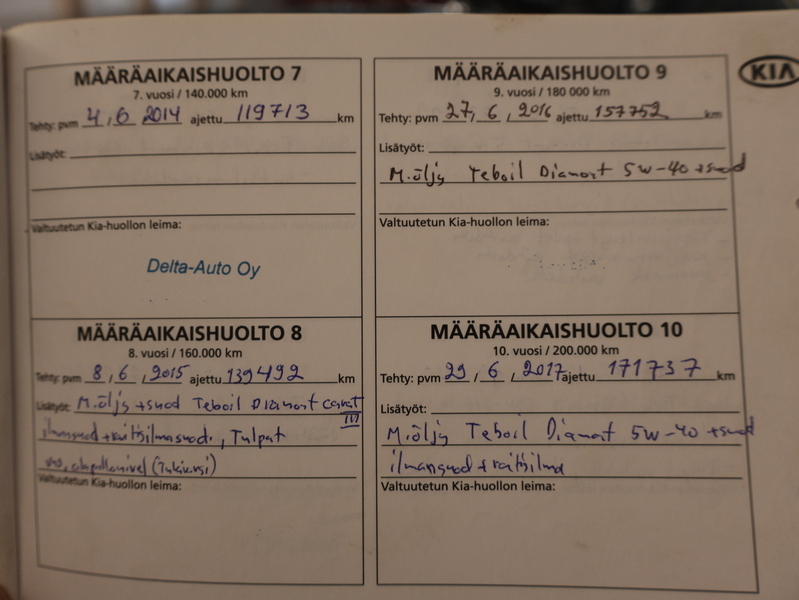 MÄÄRÄAIKAISHUOLTO 7
7. vuosi / 140.000 km
Tehty: pvm 4,6 2014 ajettu 119713 km
Lisätyöt:
Valtuutetun Kia-huollon leima:
Delta-Auto Oy
MÄÄRÄAIKAISHUOLTO 8
8. vuosi / 160.000 km
Tehty: pvm 8,6,2015 ajettu 139492 km
Lisätyöt: M.öljy +suod Teboil Diamont
ilmansuod+raitisilmasuod., Tulpat
alapallonivel
Valtuutetun Kia-huollon leima:
MÄÄRÄAIKAISHUOLTO 9
9. vuosi / 180 000 km
Tehty: pvm 27,6,2016 ajettu 157752 km
Lisätyöt:
M.öljy Teboil Diamont 5w-40 +suod
Valtuutetun Kia-huollon leima:
MÄÄRÄAIKAISHUOLTO 10
10. vuosi / 200.000 km
Tehty: pvm 29,6,2017 ajettu 171737 km
Lisätyöt:
M.öljy Teboil Diamont 5w-40 +suod
ilmansuod+raitisilma
Valtuutetun Kia-huollon leima:
KIA